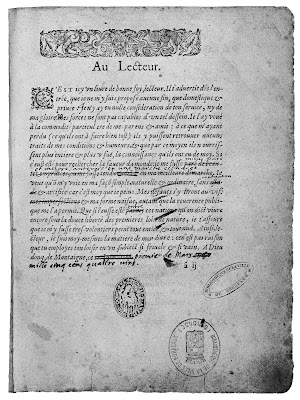 Au Lecteur.
C'EST icy un livre de bonne foy, lecteur. Il t'advertit dés l'en-
trée, que je ne m'y suis proposé aucune fin, que domestique &
privée: je n'y ay eu nulle consideration de ton service, ny de
ma gloire: mes forces ne sont pas capables d'un tel dessein. Je l'ay voüé
à la commodité particuliere de mes parens & amis: à ce que m'ayant
perdu (ce qu'ils ont à faire bien tost) ils y puissent retrouver aucuns
traits de mes conditions & humeurs, & que par ce moyen ils nourris-
sent plus entiere & plus vifve, la connoissance qu'ils ont eu de moy. Si
c'eust esté pour rechercher la faveur du monde, je me fusse
marche, Je
veux qu'on m'y voie en ma façon simple, naturelle & ordinaire, sans
& artifice: car c'est moy que je peins. Mes
& ma forme naïfve, autant que la reverence publi-
que me l'a permis. Que si j'eusse esté ces nations qu'on dict vivre
encore sous la douce liberté des premieres loix de nature, je t'asseure
que je m'y fusse tres-volontiers peint tout entier, & tout nud. Ainsi, le-
cteur, je suis moy-mesmes la matiere de mon livre: ce n'est pas raison
que tu employes ton loisir en un subject si frivole & si vain. A Dieu
donq, de Montaigne, ce premier de Mars
mille cinq cens quattre vins.
ã ij